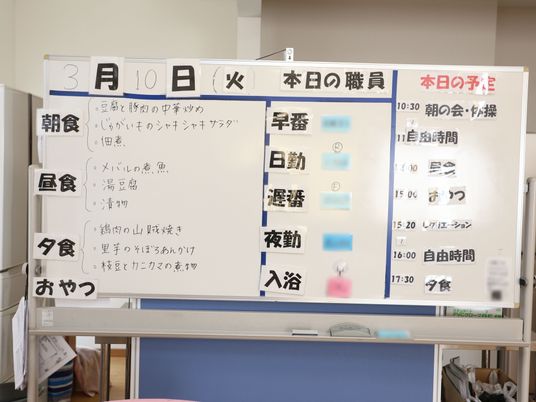 3月10日(火
朝食
。豆腐と豚肉の中華炒め
。じゃがいものシャキシャキサラダ
。佃煮
昼食
。メバルの煮魚
。湯豆腐
。漬物
夕食
。鶏肉の山賊焼き
。里芋のそぼろあんかけ
。枝豆とカニカマの煮物
おやつ
本日の職員
早番
日勤
遅番
夜勤
入浴
本日の予定
10:30 朝の会・体操
11 自由時間
昼食
15:00 おやつ
15:20 レクリエーション
16:00 自由時間
17:30 夕食